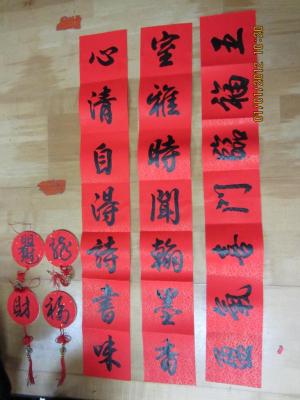 五福臨門喜氣盈
室雅時聞翰墨香
心清自得詩書味
龍
財
福
01/01/2012 10:30